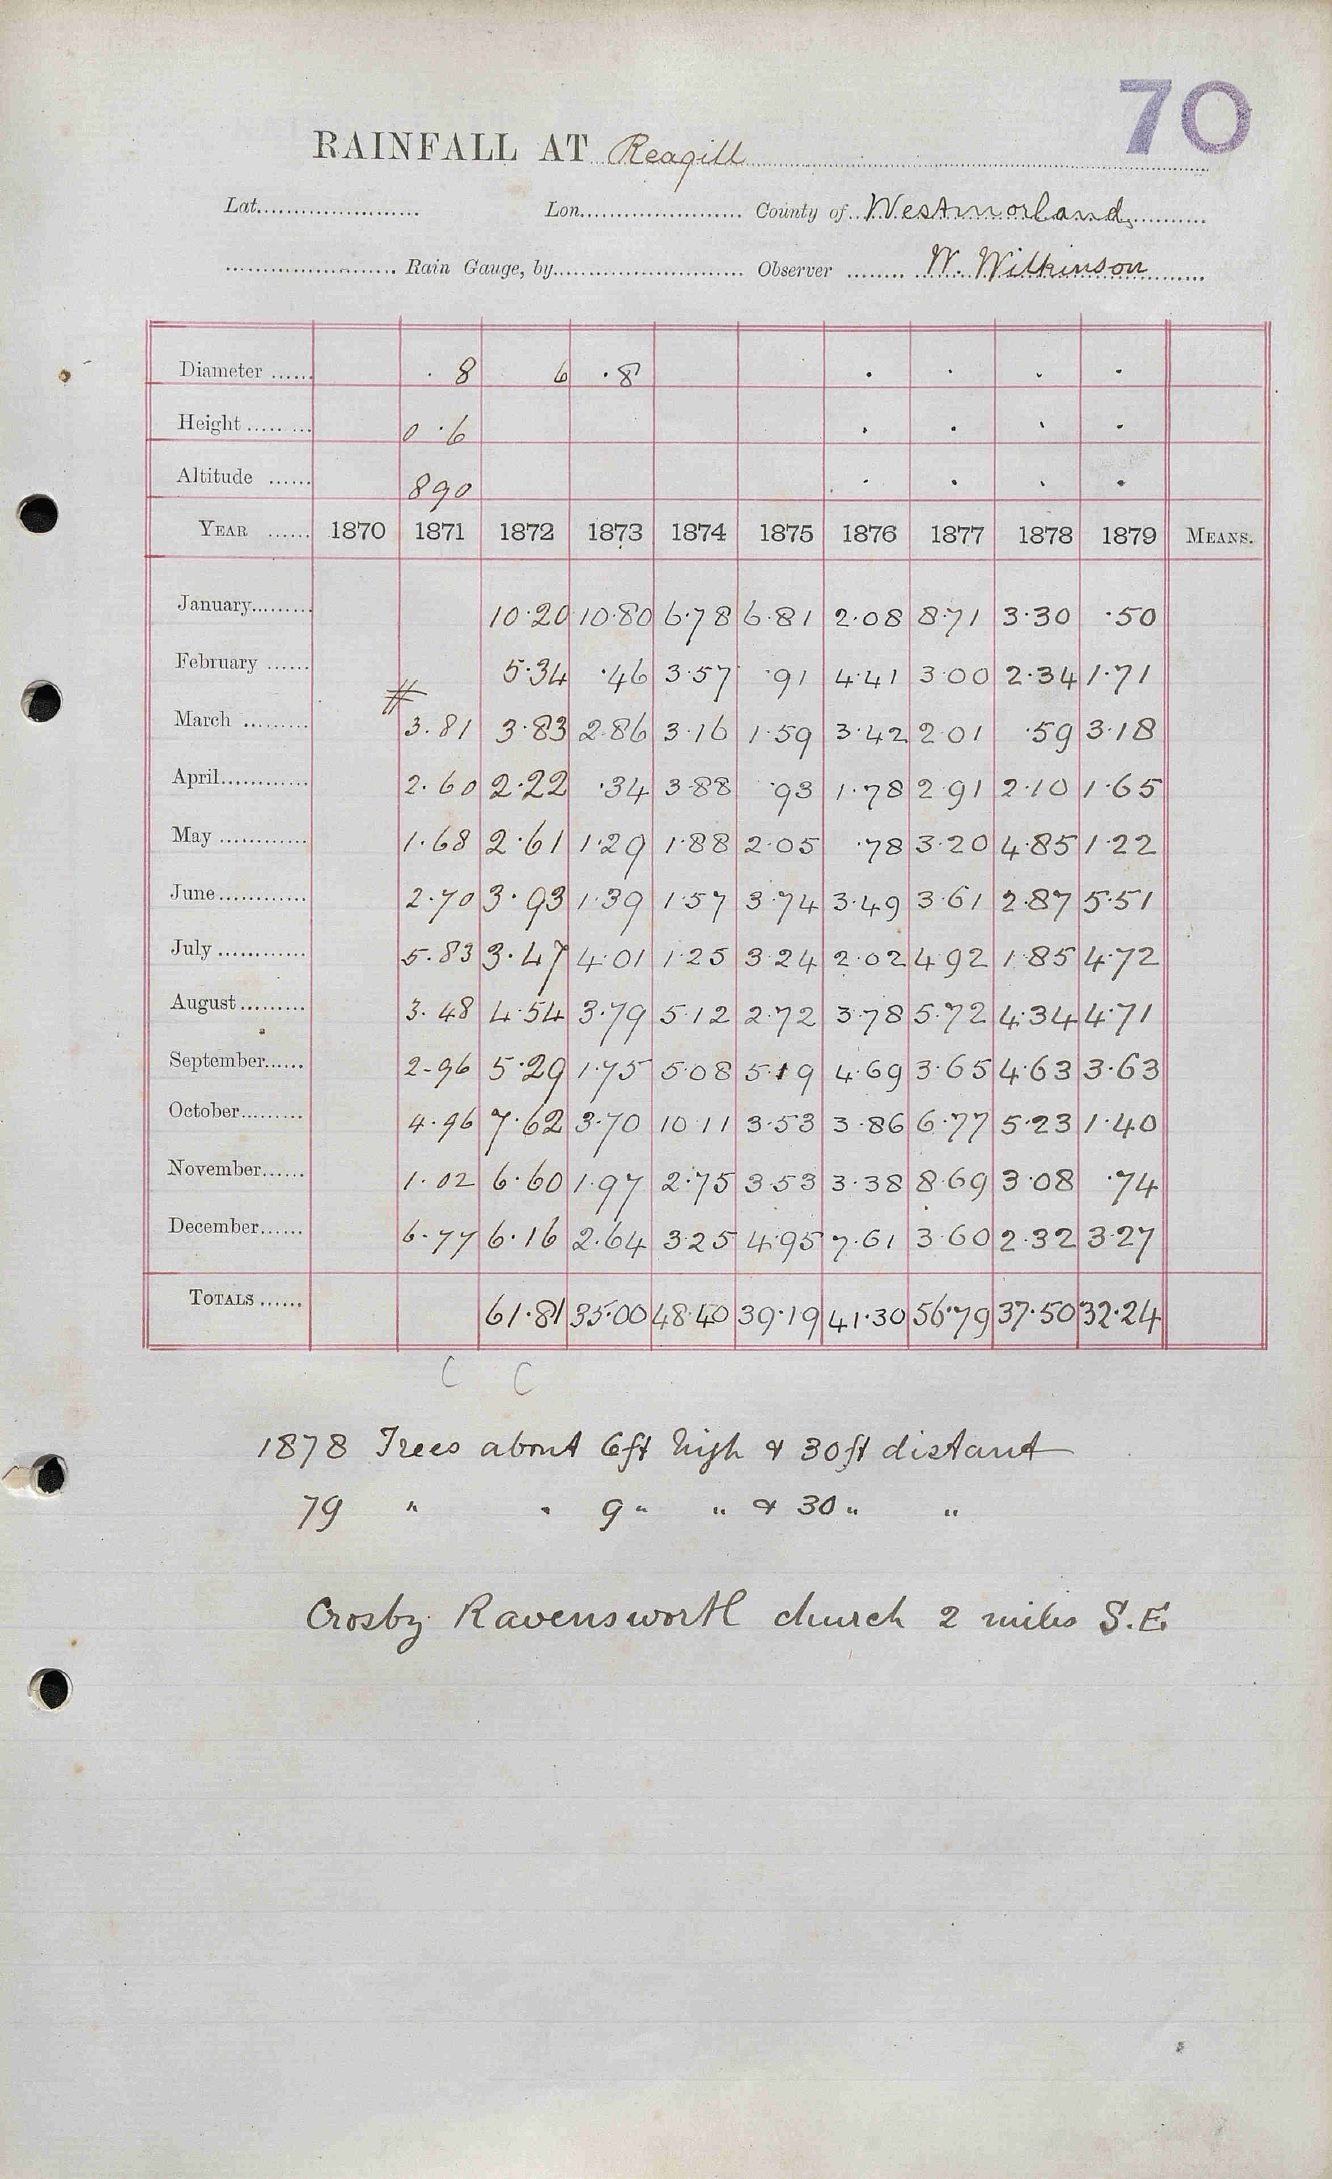 70
RAINFALL AT Reagill
Lat. Lon. County of Westmorland,
Rain Gauge, by Observer W. Wilkinson
Diameter . 8 6 .8 . . . .
Height 0.6 . . . .
Altitude 890 . . . .
YEAR 1870 1871 1872 1873 1874 1875 1876 1877 1878 1879 MEANS.
January 10.20 10.80 6.78 6.81 2.08 8.71 3.30 .50
February 5.34 .46 3.57 .91 4.41 3.00 2.34 1.71
March # 3.81 3.83 2.86 3.16 1.59 3.42 2.01 .59 3.18
April 2.60 2.22 .34 3.88 .93 1.78 2.91 2.10 1.65
May 1.68 2.61 1.29 1.88 2.05 .78 3.20 4.85 1.22
June 2.70 3.93 1.39 1.57 3.74 3.49 3.61 2.87 5.51
July 5.83 3.47 4.01 1.25 3.24 2.02 4.92 1.85 4.72
August 3.48 4.54 3.79 5.12 2.72 3.78 5.72 4.34 4.71
September 2.96 5.29 1.75 5.08 5.19 4.69 3.65 4.63 3.63
October 4.96 7.62 3.70 10.11 3.53 3.86 6.77 5.23 1.40
November 1.02 6.60 1.97 2.75 3.53 3.38 8.69 3.08 .74
December 6.77 6.16 2.64 3.25 4.95 7.61 3.60 2.32 3.27
TOTALS 61.81 35.00 48.40 39.19 41.30 56.79 37.50 32.24
C C
1878 Trees about 6ft high & 30ft distant
79 " " 9 " " & 30 " "
Crosby Ravensworth church 2 miles S.E.